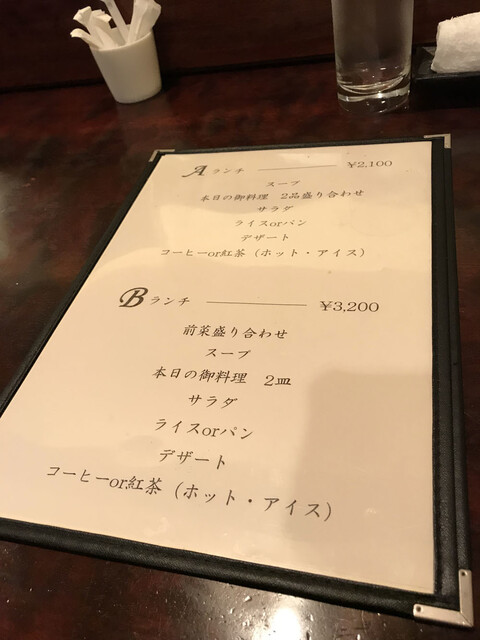 Aランチ ¥2,100
スープ
本日の御料理 2品盛り合わせ
サラダ
ライスorパン
デザート
コーヒーor紅茶（ホット・アイス）
Bランチ ¥3,200
前菜盛り合わせ
スープ
本日の御料理 2皿
サラダ
ライスorパン
デザート
コーヒーor紅茶（ホット・アイス）